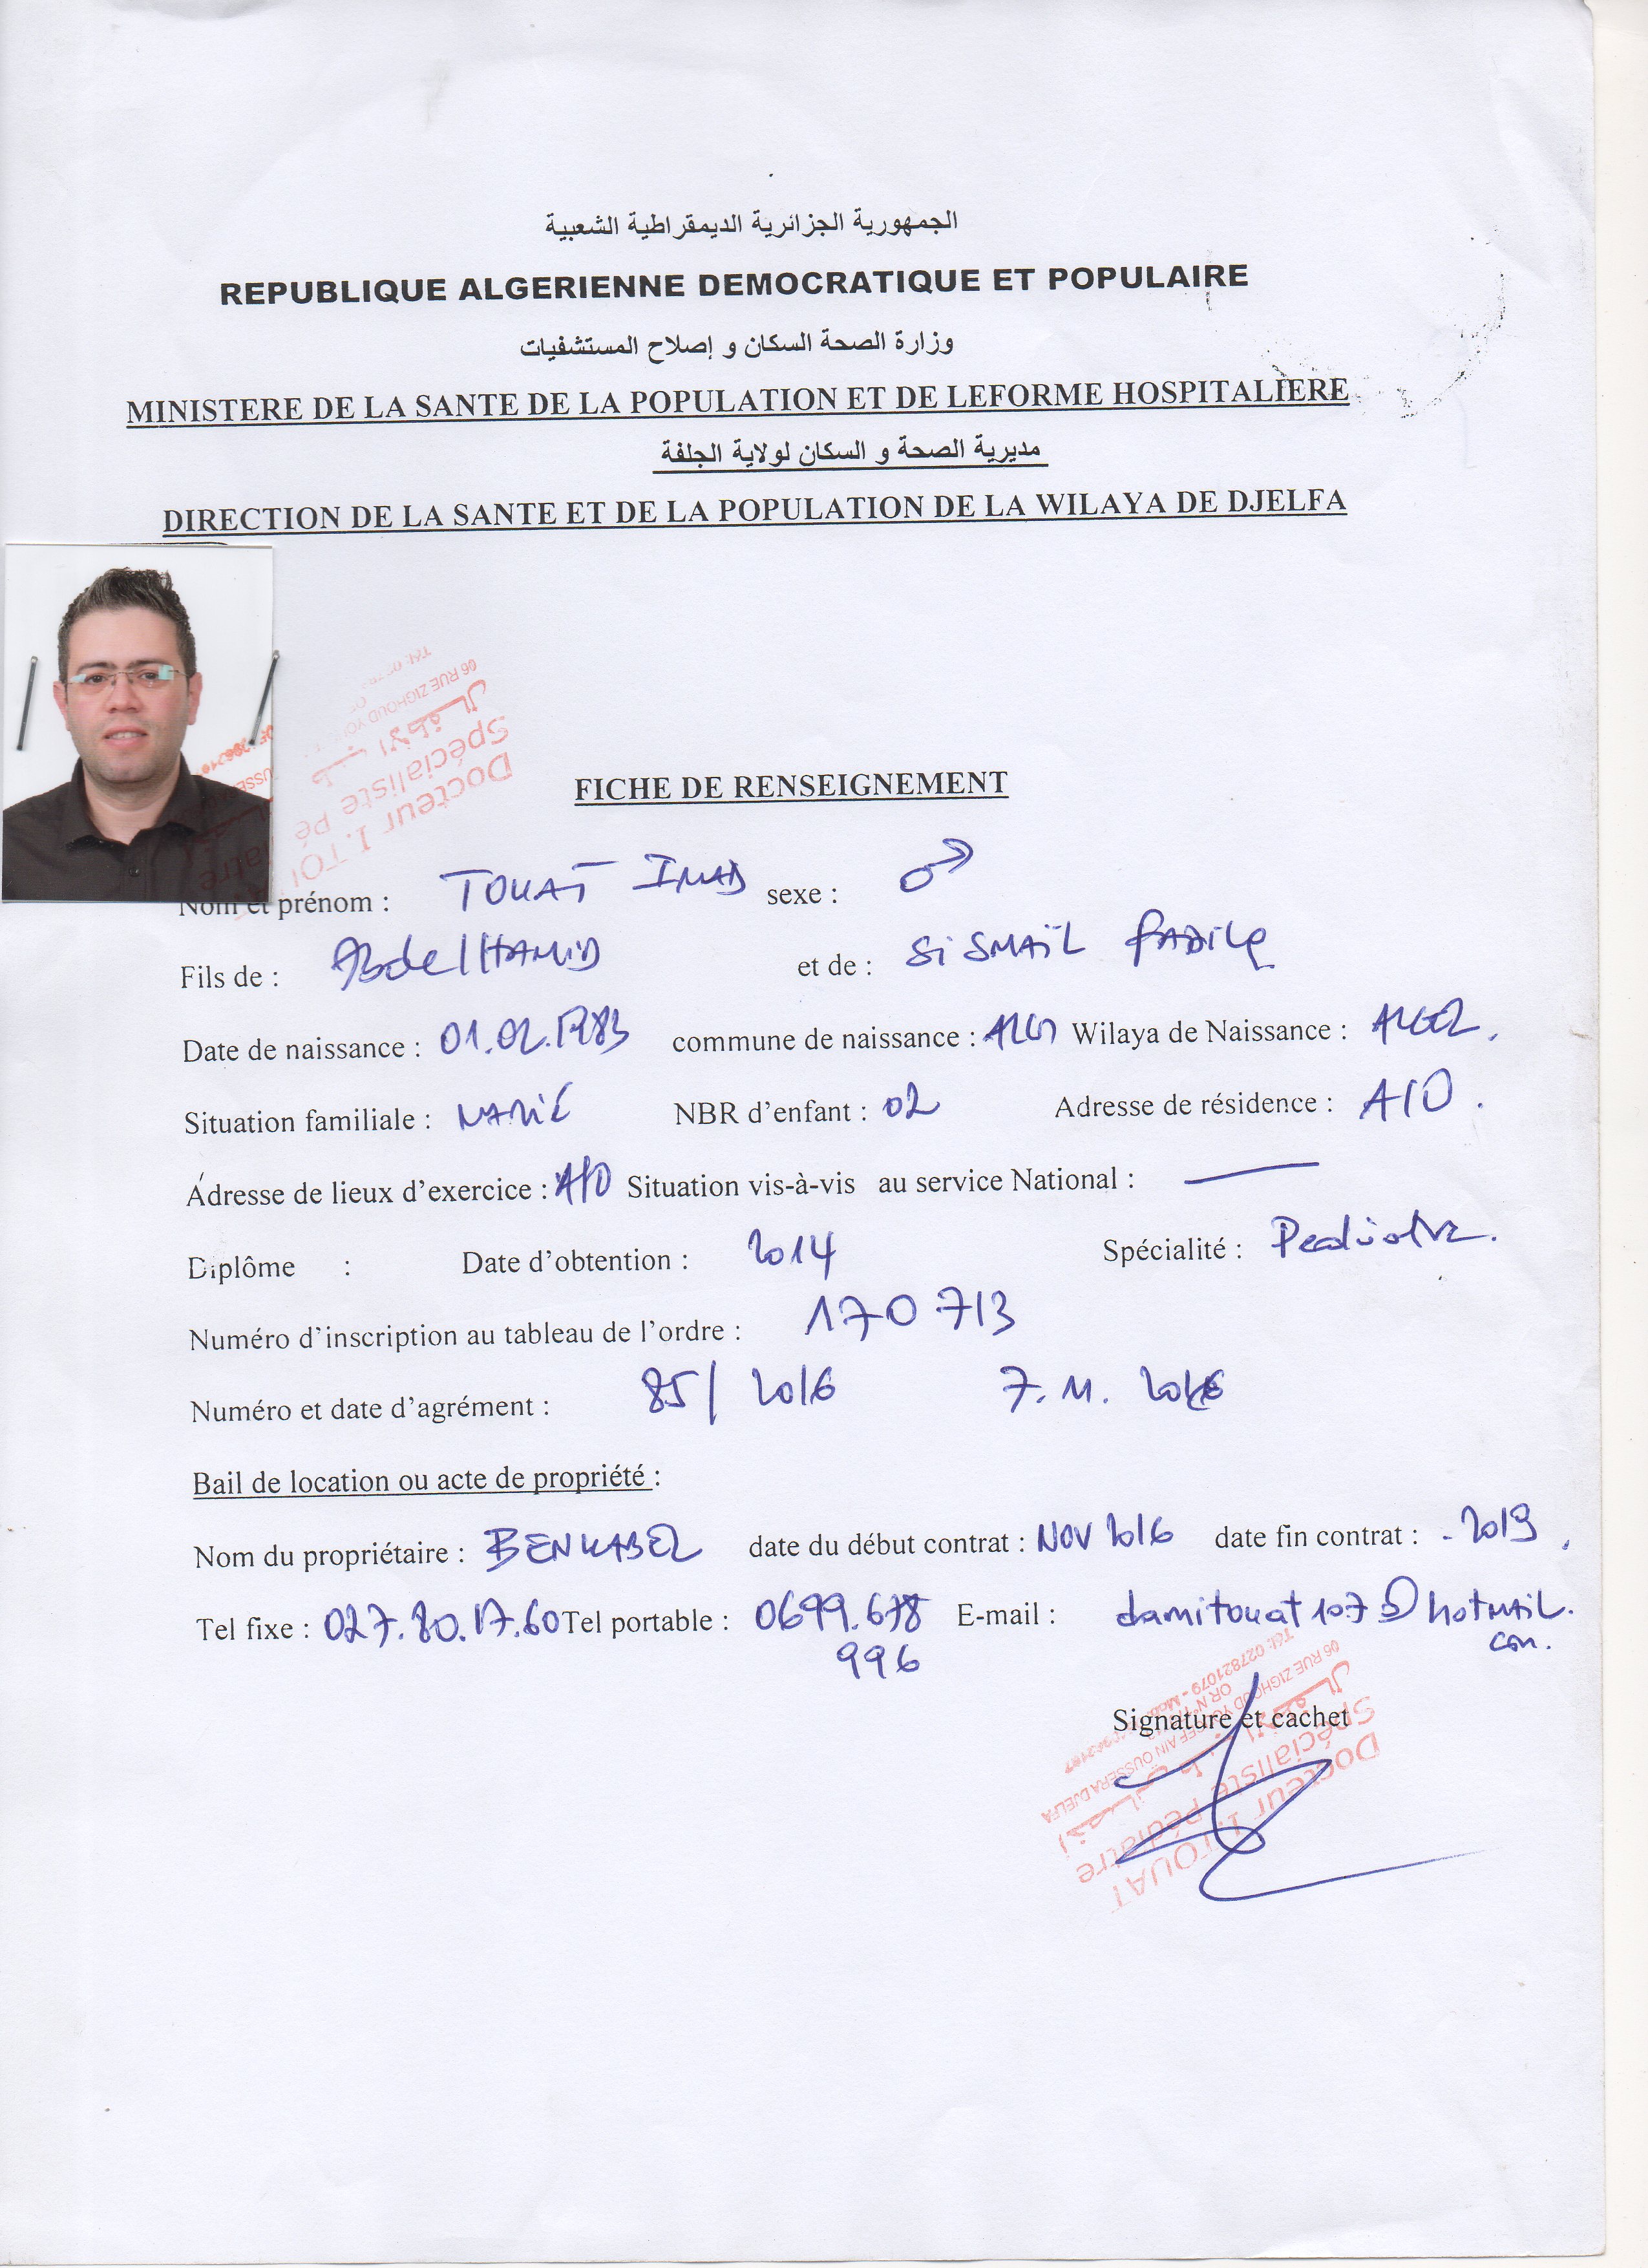 الجمهورية الجزائرية الديمقراطية الشعبية
REPUBLIQUE ALGERIENNE DEMOCRATIQUE ET POPULAIRE
وزارة الصحة السكان و إصلاح المستشفيات
MINISTERE DE LA SANTE DE LA POPULATION ET DE LEFORME HOSPITALIERE
مديرية الصحة و السكان لولاية الجلفة
DIRECTION DE LA SANTE ET DE LA POPULATION DE LA WILAYA DE DJELFA
FICHE DE RENSEIGNEMENT
Nom et prénom : TOUAT IMAD sexe : ♂
Fils de : AbdelHAMID et de : Si SMAÏL
Date de naissance : 01.02.1983 commune de naissance : Wilaya de Naissance : ALGER.
Situation familiale : MARIÉ NBR d'enfant : 02 Adresse de résidence : A/O.
Adresse de lieux d'exercice : A/O Situation vis-à-vis au service National : —
Diplôme : Date d'obtention : 2014 Spécialité : Pediatre.
Numéro d'inscription au tableau de l'ordre : 170 713
Numéro et date d'agrément : 85/ 2016 7.11. 2016
Bail de location ou acte de propriété :
Nom du propriétaire : date du début contrat : NOV 2016 date fin contrat : - 2019.
Tel fixe : 027.80.17.60 Tel portable : 0699.678 E-mail : damitouat107@hotmail.
996 com.
Signature et cachet
Docteur I. TOUAT
Spécialiste Pédiatre
06 RUE ZIGHOUD YOUCEF AIN OUSSERA DJELFA